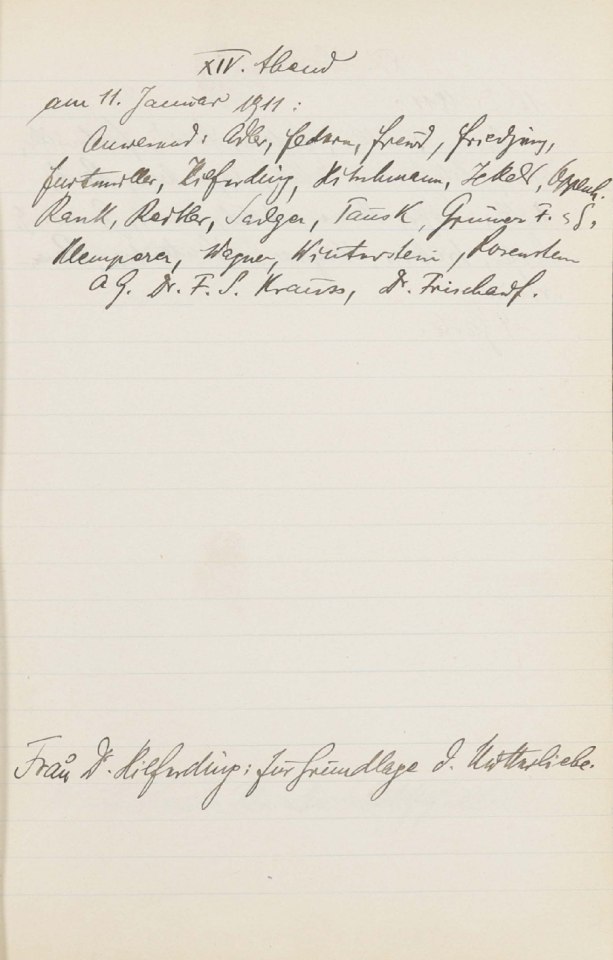 XIV. Abend
am 11. Januar 1911:
Anwesend: Adler, Federn, Freud, Friedjung,
Furtmüller, Hilferding, Hitschmann, Jekels, Oppenh.
Rank, Reitler, Sadger, Tausk, Grüner F. & G.,
Klemperer, Wagner, Winterstein, Rosenstein
a G. Dr. F. S. Krauss, Dr. Frischauf.
Frau Dr. Hilferding: Zur Grundlage d. Mutterliebe.